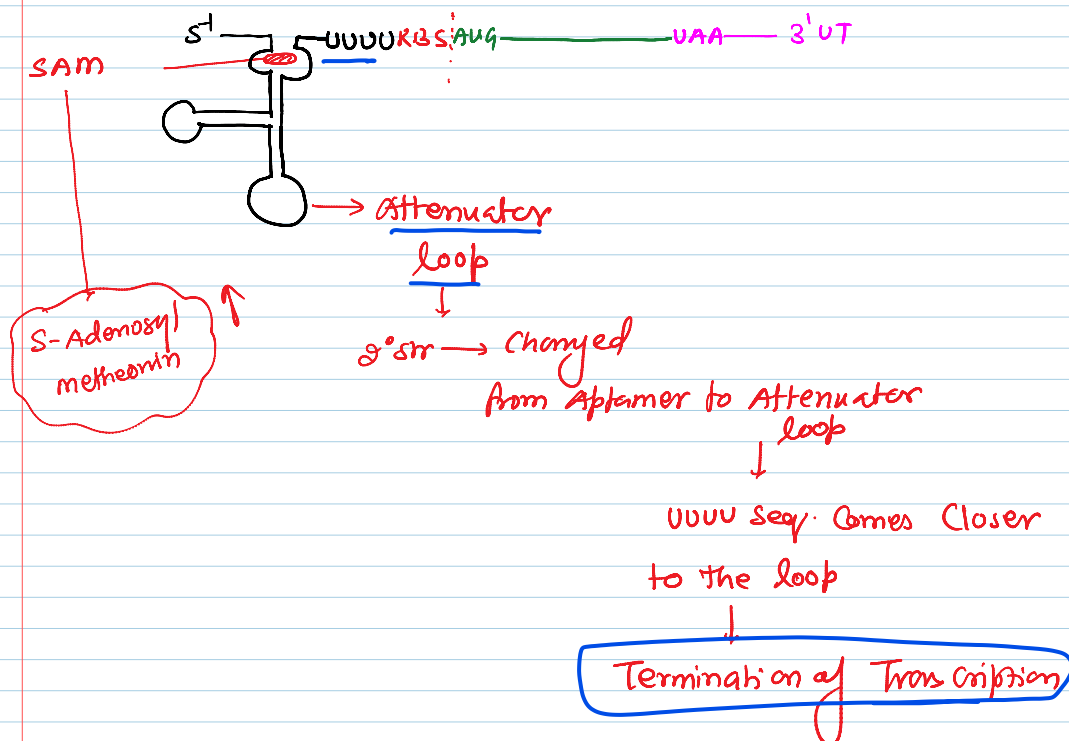 5' UUUU RBS AUG UAA 3' UT
SAM
Attenuator
loop
S-Adenosyl
metheonin
2° str → Changed
from Aptamer to Attenuator
loop
UUUU Seq. Comes Closer
to the loop
Termination of Transcription